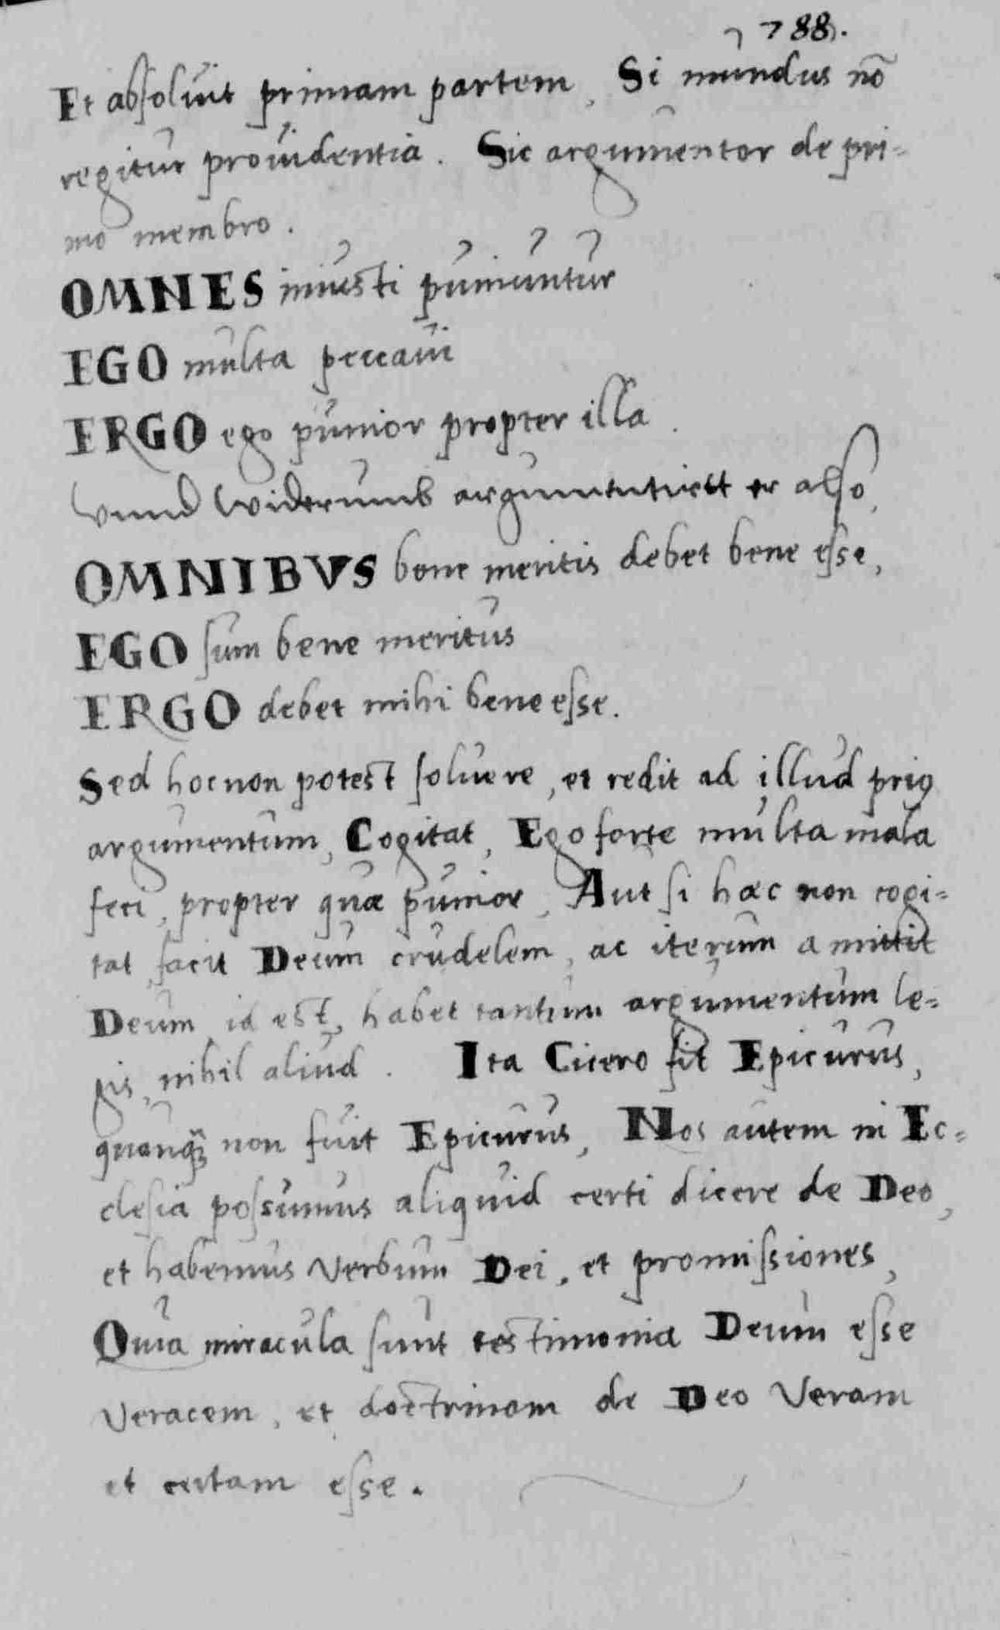 788.
Et absoluit primam partem, Si mundus nõ
regitur prouidentia. Sic argumentor de pri=
mo membro.
OMNES iniusti puniuntur
EGO multa peccaui
ERGO ego punior propter illa.
Vnnd widerumb argumentirtt er also,
OMNIBVS bene meritis debet bene esse,
EGO sum bene meritus
ERGO debet mihi bene esse.
Sed hoc non potest soluere, et redit ad illud prius
argumentum, Cogitat, Ego forte multa mala
feci, propter quæ punior, Aut si hæc non cogi=
tat, facit Deum crudelem, ac iterum amittit
Deum, id est, habet tantum argumentum le=
gis, nihil aliud. Ita Cicero fit Epicurus,
quanq̃ non fuit Epicurus, Nos autem in Ec=
clesia possumus aliquid certi dicere de Deo,
et habemus Verbum Dei, et promissiones,
Quia miracula sunt testimonia Deum esse
Veracem, et doctrinam de Deo Veram
et certam esse.